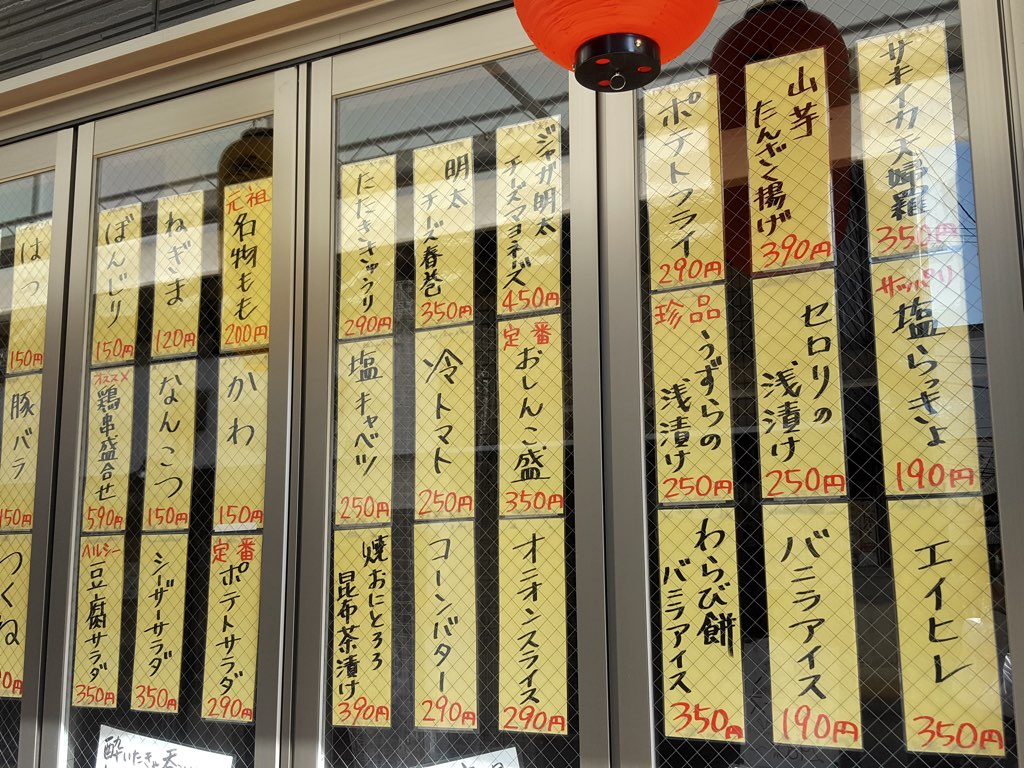 サキイカ天婦羅
350円
山芋
たんざく揚げ
390円
ポテトフライ
290円
サッパリ
塩らっきょ
190円
セロリの
浅漬け
250円
珍品
うずらの
浅漬け
250円
エイヒレ
350円
バニラアイス
190円
わらび餅
バニラアイス
350円
ジャガ明太
チーズマヨネーズ
450円
明太
チーズ春巻
350円
たたききゅうり
290円
定番
おしんこ盛
350円
冷トマト
250円
塩キャベツ
250円
オニオンスライス
290円
コーンバター
290円
焼おにとろろ
昆布茶漬け
390円
元祖
名物もも
200円
ねぎま
120円
ぼんじり
150円
はつ
150円
かわ
150円
なんこつ
150円
オススメ
鶏串盛合せ
590円
豚バラ
150円
定番
ポテトサラダ
290円
シーザーサラダ
350円
ヘルシー
豆腐サラダ
350円
つくね